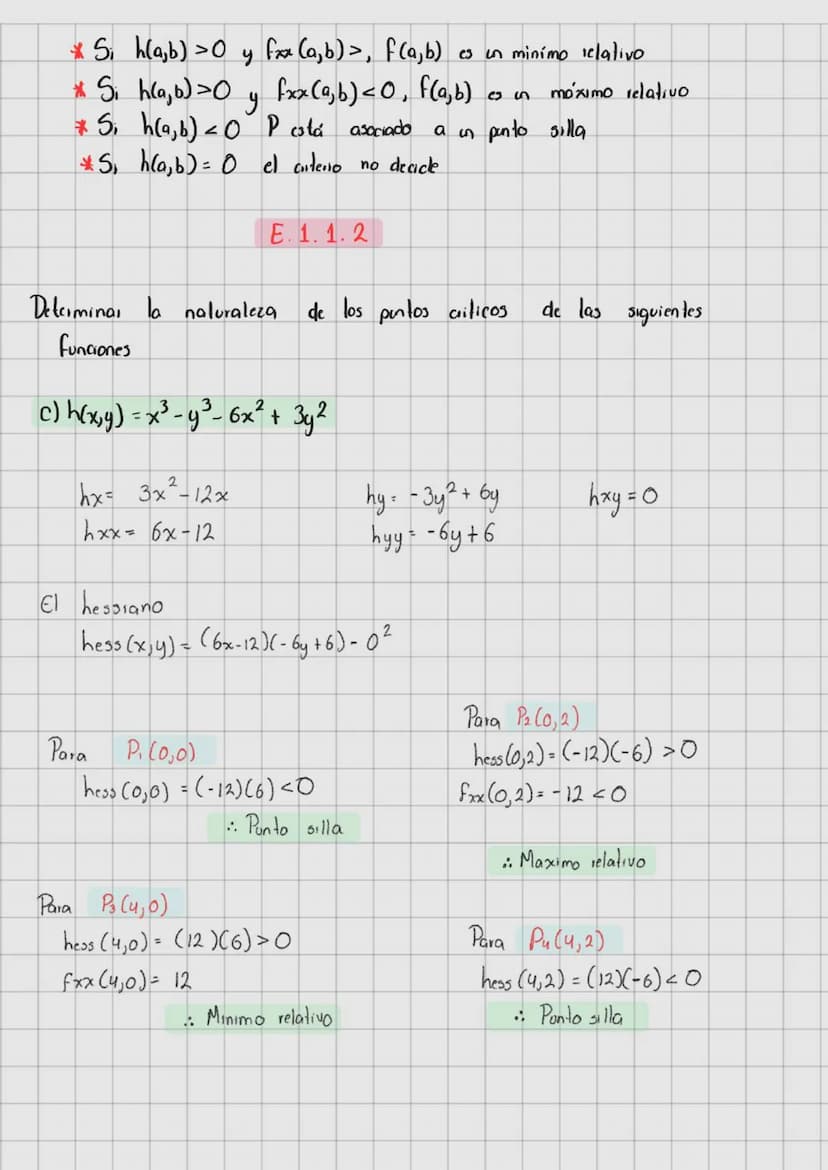 * Si h(a,b) >0 y fxx (a,b)>, f(a,b) es un minimo relativo
* Si h(a,b)>0 y fxx(a,b)<0, f(a,b) es un máximo relativo
* Si h(a,b) <0 P está asociado a un punto silla
* Si h(a,b) = 0 el criterio no decide
E. 1. 1. 2
Determinar la naturaleza de los puntos criticos de las siguientes
funciones
c) h(x,y) = x³ - y³ - 6x² + 3y²
hx= 3x² - 12x hy = -3y² + 6y hxy = 0
hxx = 6x - 12 hyy = -6y + 6
El hessiano
hess (x,y) = (6x-12)(-6y+6) - 0²
Para P₁ (0,0)
hess (0,0) = (-12)(6) <0
∴ Punto silla
Para P₂ (0,2)
hess (0,2) = (-12)(-6) >0
fxx (0,2) = -12 <0
∴ Maximo relativo
Para P₃ (4,0)
hess (4,0) = (12)(6) > 0
fxx (4,0) = 12
∴ Minimo relativo
Para P₄ (4,2)
hess (4,2) = (12)(-6) < 0
∴ Punto silla